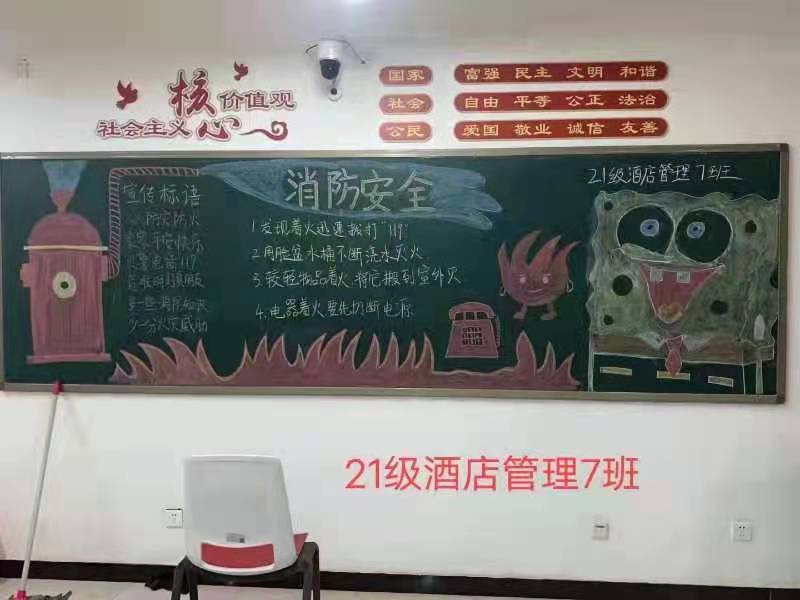 核
价值观
社会主义心
国家 富强 民主 文明 和谐
社会 自由 平等 公正 法治
公民 爱国 敬业 诚信 友善
宣传标语
防火
消防安全
1.发现着火迅速拨打"119"
2.用脸盆水桶不断浇水灭火
3.较轻物品着火,将它搬到室外灭
4.电器着火要先切断电源
21级酒店管理7班
多一些消防知识
少一分火灾威胁
21级酒店管理7班